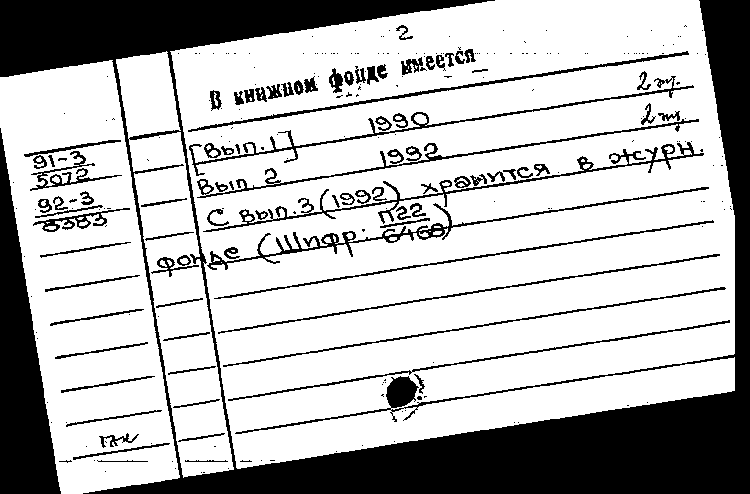 2
В книжном фонде имеется
91-3
5072
[Вып. 1] 1990 2 экз.
92-3
8383
Вып. 2 1992 2 экз.
С вып. 3 (1992) хранится в журн.
фонде (Шифр: П22
6468)